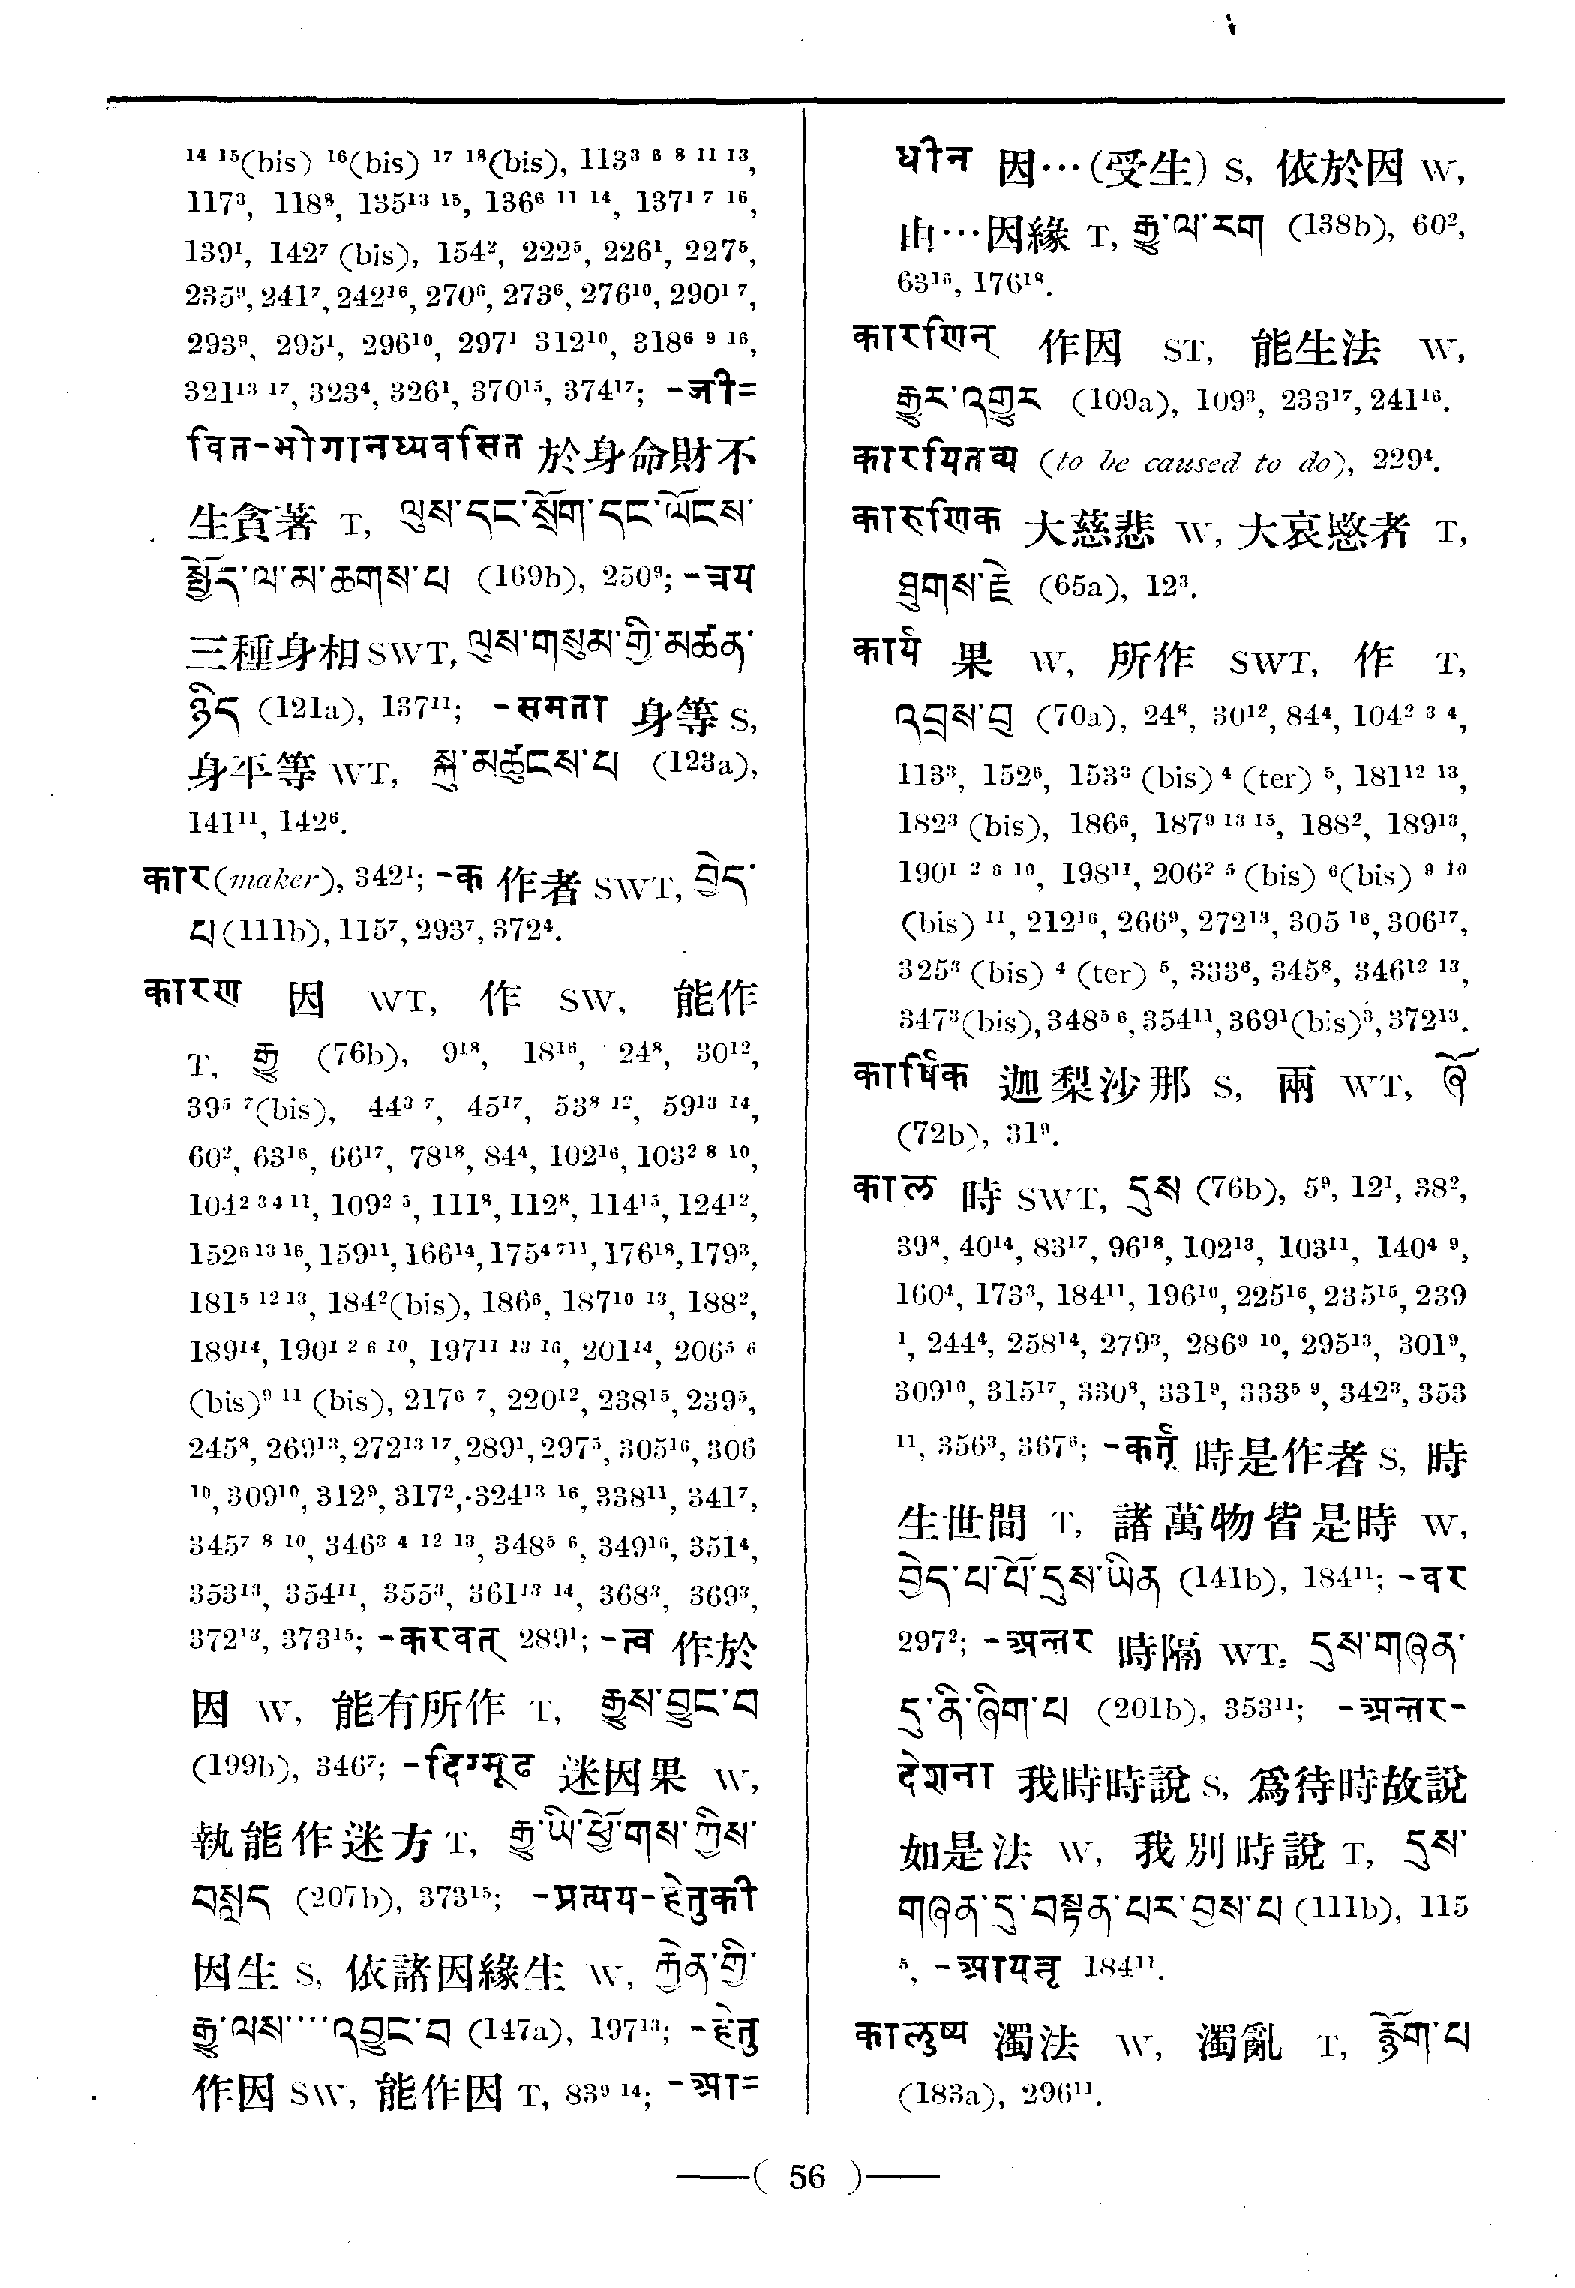 ¹⁴ ¹⁵(bis) ¹⁶(bis) ¹⁷ ¹⁸(bis), 113³ ⁶ ⁸ ¹¹ ¹³,
117³, 118⁸, 135¹³ ¹⁵, 136⁶ ¹¹ ¹⁴, 137¹ ⁷ ¹⁶,
139¹, 142⁷ (bis), 154², 222⁵, 226¹, 227⁵,
235⁹, 241⁷, 242¹⁶, 270⁶, 273⁶, 276¹⁰, 290¹ ⁷,
293⁹, 295¹, 296¹⁰, 297¹ 312¹⁰, 318⁶ ⁹ ¹⁶,
321¹³ ¹⁷, 323⁴, 326¹, 370¹⁵, 374¹⁷; -जी=
वित-भोगानध्यवसित 於身命財不
生貪著 T, ལུས་དང་སྲོག་དང་ལོངས་
སྤྱོད་ལ་མ་ཆགས་པ (169b), 250⁹; -त्रय
三種身相 SWT, ལུས་གསུམ་གྱི་མཚན་
ཉིད (121a), 137¹¹; -समता 身等 S,
身平等 WT, སྐུ་མཚུངས་པ (123a),
141¹¹, 142⁶.
कार (maker), 342¹; -क 作者 SWT, བྱེད་
པ (111b), 115⁷, 293⁷, 372⁴.
कारण 因 WT, 作 SW, 能作
T, རྒྱུ (76b), 9¹⁸, 18¹⁶, 24⁸, 30¹²,
39⁵ ⁷(bis), 44³ ⁷, 45¹⁷, 53⁸ ¹², 59¹³ ¹⁴,
60², 63¹⁶, 66¹⁷, 78¹⁸, 84⁴, 102¹⁶, 103² ⁸ ¹⁰,
104² ³ ⁴ ¹¹, 109² ⁵, 111⁸, 112⁸, 114¹⁵, 124¹²,
152⁶ ¹³ ¹⁶, 159¹¹, 166¹⁴, 175⁴ ⁷ ¹¹, 176¹⁸, 179³,
181⁵ ¹² ¹³, 184²(bis), 186⁶, 187¹⁰ ¹³, 188²,
189¹⁴, 190¹ ² ⁶ ¹⁰, 197¹¹ ¹³ ¹⁶, 201¹⁴, 206⁵ ⁶
(bis)⁹ ¹¹ (bis), 217⁶ ⁷, 220¹², 238¹⁵, 239⁵,
245⁸, 269¹³, 272¹³ ¹⁷, 289¹, 297⁵, 305¹⁶, 306
¹⁰, 309¹⁰, 312⁹, 317², 324¹³ ¹⁶, 338¹¹, 341⁷,
345⁷ ⁸ ¹⁰, 346³ ⁴ ¹² ¹³, 348⁵ ⁶, 349¹⁶, 351⁴,
353¹³, 354¹¹, 355³, 361¹³ ¹⁴, 368³, 369³,
372¹³, 373¹⁵; -करवत् 289¹; -त्व 作於
因 W, 能有所作 T, རྒྱུས་བྱུང་བ
(199b), 346⁷; -दिग्मूढ 迷因果 W,
執能作迷方 T, རྒྱུ་ཡི་ཕྱོགས་ཀྱིས་
བསླད (207b), 373¹⁵; -प्रत्यय-हेतुकी
因生 S, 依諸因緣生 W, རྐྱེན་གྱི་
རྒྱུ་ལས་···འབྱུང་བ (147a), 197¹³; -हेतु
作因 SW, 能作因 T, 83⁹ ¹⁴; -आ=
धीन 因···(受生) S, 依於因 W,
由···因緣 T, རྒྱུ་ལ་རག (138b), 60²,
63¹⁶, 176¹⁸.
कारणिन् 作因 ST, 能生法 W,
རྒྱུར་འགྱུར (109a), 109³, 233¹⁷, 241¹⁶.
कारयितव्य (to be caused to do), 229⁴.
कारुणिक 大慈悲 W, 大哀愍者 T,
ཐུགས་རྗེ (65a), 12³.
कार्य 果 W, 所作 SWT, 作 T,
འབྲས་བུ (70a), 24⁸, 30¹², 84⁴, 104² ³ ⁴,
113³, 152⁶, 153³ (bis) ⁴ (ter) ⁵, 181¹² ¹³,
182³ (bis), 186⁶, 187⁹ ¹³ ¹⁵, 188², 189¹³,
190¹ ² ⁶ ¹⁰, 198¹¹, 206² ⁵ (bis) ⁶(bis) ⁹ ¹⁰
(bis) ¹¹, 212¹⁶, 266⁹, 272¹³, 305 ¹⁶, 306¹⁷,
325³ (bis) ⁴ (ter) ⁵, 333⁶, 345⁸, 346¹² ¹³,
347³(bis), 348⁵ ⁶, 354¹¹, 369¹(bis)³, 372¹³.
कार्षिक 迦梨沙那 S, 兩 WT, ཞོ
(72b), 31⁹.
काल 時 SWT, དུས (76b), 5⁹, 12¹, 38²,
39⁸, 40¹⁴, 83¹⁷, 96¹⁸, 102¹³, 103¹¹, 140⁴ ⁹,
160⁴, 173³, 184¹¹, 196¹⁰, 225¹⁶, 235¹⁵, 239
¹, 244⁴, 258¹⁴, 279³, 286⁹ ¹⁰, 295¹³, 301⁹,
309¹⁰, 315¹⁷, 330⁸, 331⁹, 333⁵ ⁹, 342³, 353
¹¹, 356³, 367⁶; -कर्तृ 時是作者 S, 時
生世間 T, 諸萬物皆是時 W,
བྱེད་པ་པོ་དུས་ཡིན (141b), 184¹¹; -वर
297²; -अन्तर 時隔 WT, དུས་གཞན་
དུ་ནི་ཞིག་པ (201b), 353¹¹; -अन्तर-
देशना 我時時說 S, 爲待時故說
如是法 W, 我別時說 T, དུས་
གཞན་དུ་བསྟན་པར་བྱས་པ (111b), 115
⁵, -आयत्तृ 184¹¹.
कालुष्य 濁法 W, 濁亂 T, རྙོག་པ
(183a), 296¹¹.
—( 56 )—